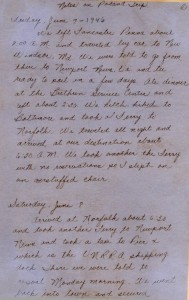 Notes on Patient Trip
Friday, June 7 - 1946
We left Lancaster Penna about
and traveled by car to New
Windsor, Md. We were told to go from
there to Newport News. Va. not be
ready to sail for a few days. Ate dinner
at the Brethren Service Center and
left about 5:00. We hitch hiked to
Baltimore and took a Ferry to
Norfolk. We traveled all night and
arrived at our destination about
6:30 A.M. We took another the Ferry
with no reservations so I slept on
an overstuffed chair.
Saturday, June 8
Arrived at Norfolk about 6:30
and took another Ferry to Newport
News and took a taxi to Pier X
which is the U.N.R.R.A. shipping
dock where we were told to
report Monday morning. We went
back into town and secured